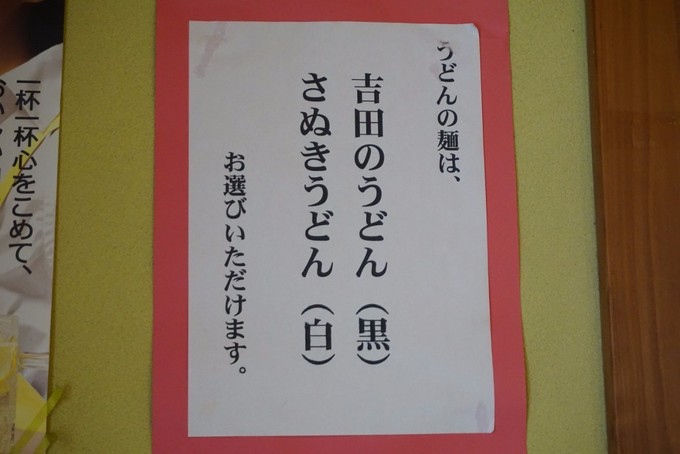 うどんの麺は、
吉田のうどん（黒）
さぬきうどん（白）
お選びいただけます。
一杯一杯心をこめて、